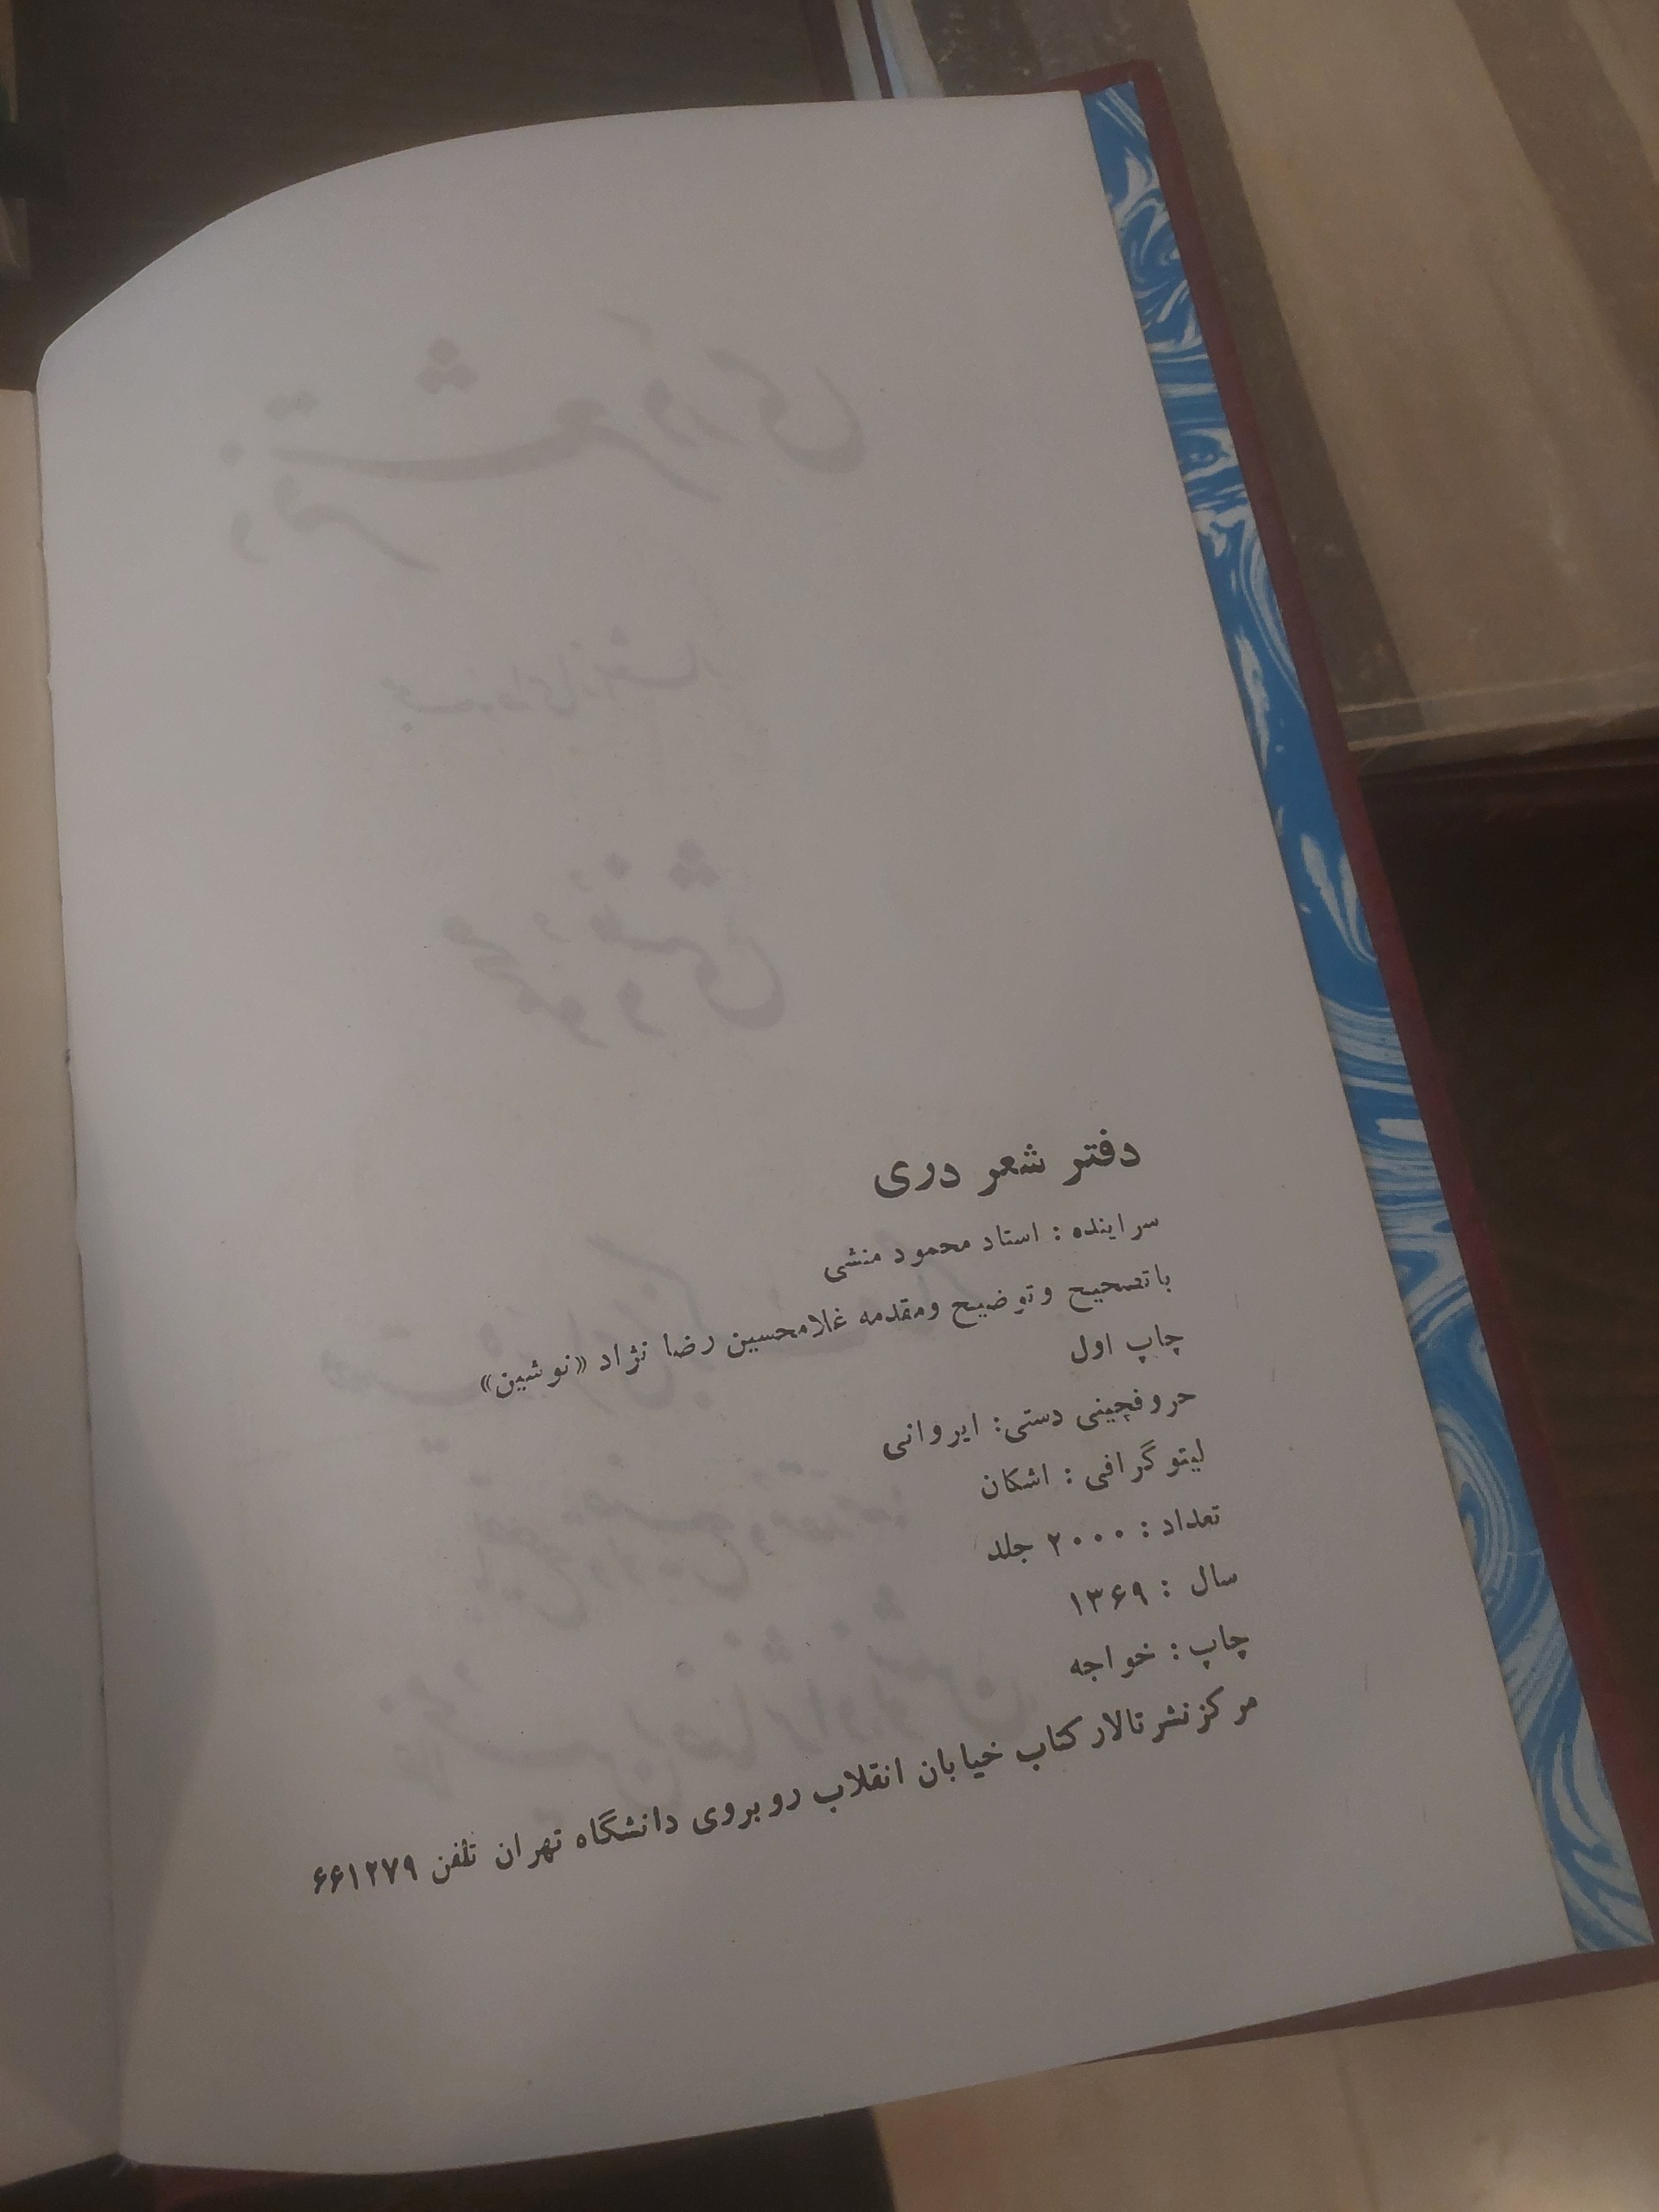 دفتر شعر دری
سراینده : استاد محمود منشی
باتصحیح وتوضیح ومقدمه غلامحسین رضا نژاد «نوشین»
چاپ اول
حروفچینی دستی: ایروانی
لیتوگرافی : اشکان
تعداد : ۲۰۰۰ جلد
سال : ۱۳۶۹
چاپ : خواجه
مرکزنشرتالارکتاب خیابان انقلاب روبروی دانشگاه تهران تلفن ۶۶۱۲۷۹